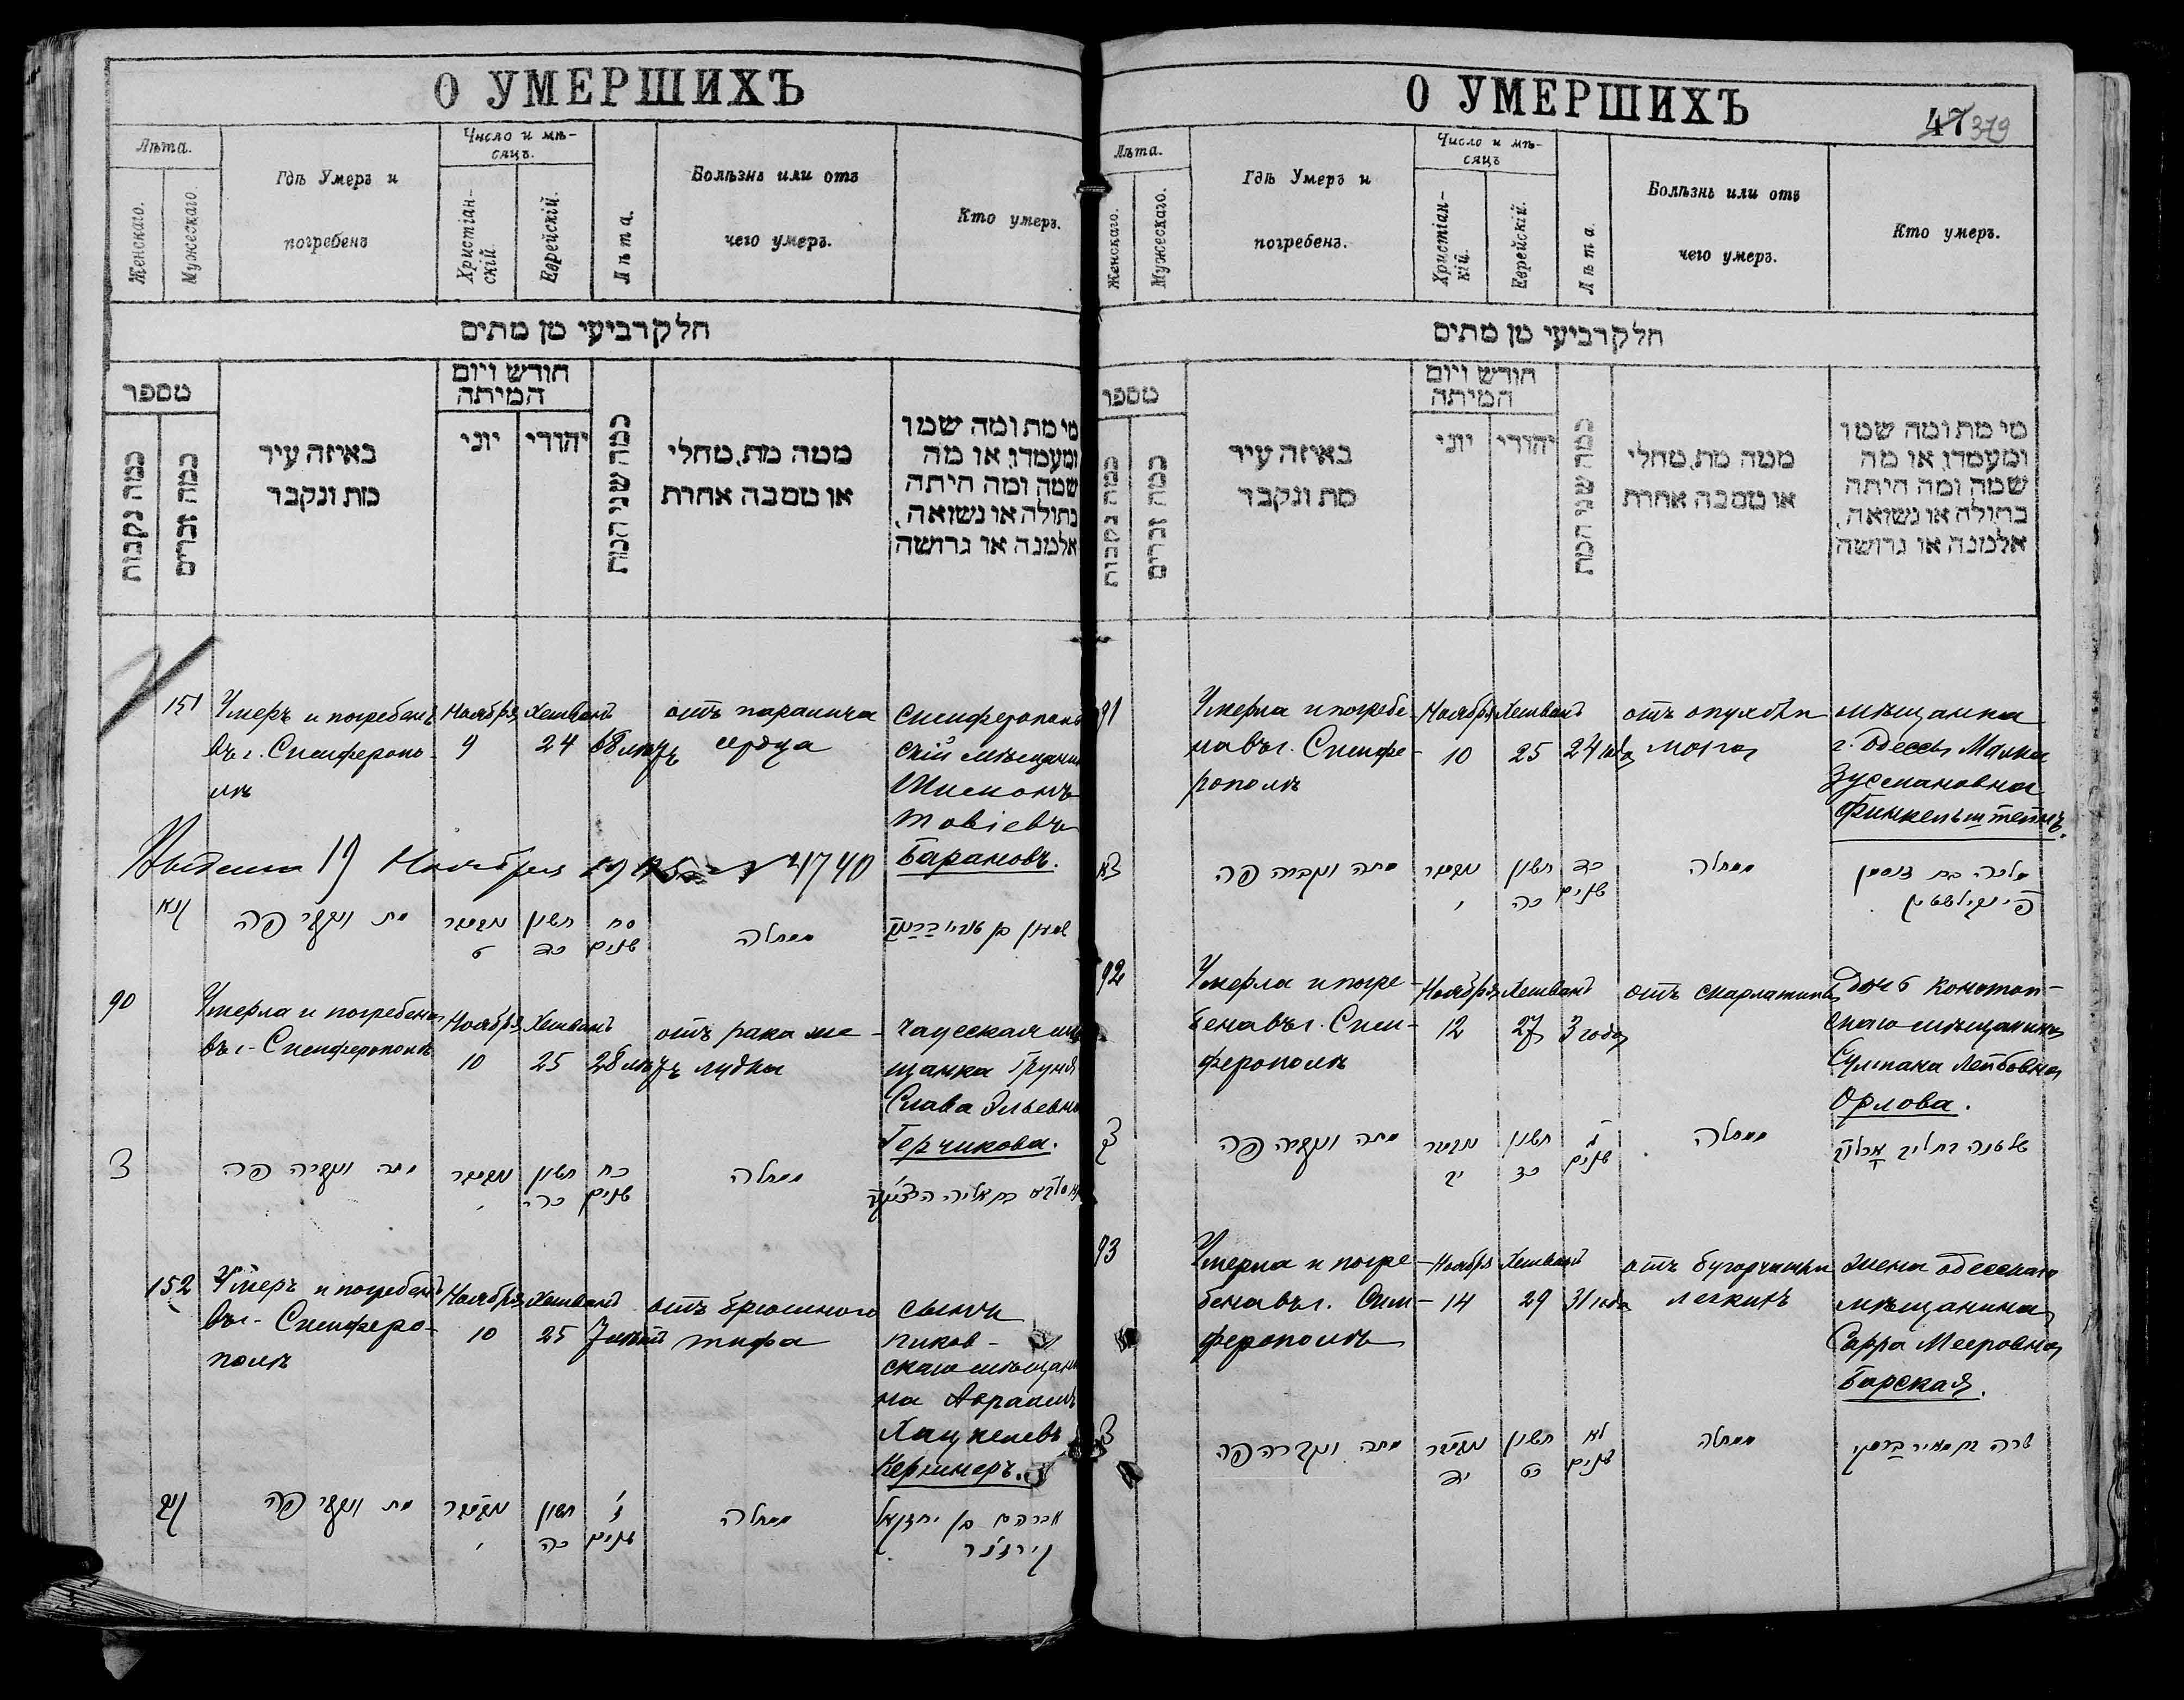 О УМЕРШИХЪ
Лѣта.
Женскаго.
Мужескаго.
Гдѣ Умеръ и
погребенъ
Число и мѣ-
сяцъ.
Христіан-
скій.
Еврейскій.
Лѣта.
Болѣзнь или отъ
чего умеръ.
Кто умеръ.
חלק רביעי מן מתים
מספר
כמה נקבות
כמה זכרים
באיזה עיר
מת ונקבר
חודש ויום
המיתה
יוני
יהודי
כמה שני המת
ממה מת, מחלי
או מסבה אחרת
מי מת ומה שמו
ומעמדו, או מה
שמה ומה היתה
בתולה או נשואה,
אלמנה או גרושה
151
Умеръ и погребенъ
въ г. Симферопо-
лѣ
Ноября
9
Хешванъ
24
68 лѣтъ
отъ паралича
сердца
Симферополь
скій мѣщанин
Шимонъ
Товіевъ
Барановъ.
19 Ноября
4740
קנא
מת ונקבר פה
נאיאבר
ט
חשון
כד
סח
שנים
ממחלה
90
Умерла и погребена
въ г. Симферополѣ
Ноября
10
Хешванъ
25
28 лѣтъ
отъ рака же-
лудка
щанка Груня
Слава Эльевна
Герчикова.
צ
מתה ונקברה פה
נאיאבר
י
חשון
כה
כח
שנים
ממחלה
152
Умеръ и погребенъ
въ г. Симферо-
полѣ
Ноября
10
Хешванъ
25
7 лѣтъ
отъ брюшного
тифа
сынъ
пиков-
скаго мѣщани
на Авраамъ
Хацкелевъ
קנב
מת ונקבר פה
נאיאבר
י
חשון
כה
ז
שנים
ממחלה
אברהם בן יחזקאל
О УМЕРШИХЪ
47 379
Лѣта.
Женскаго.
Мужескаго.
Гдѣ Умеръ и
погребенъ.
Число и мѣ-
сяцъ
Христіан-
кій.
Еврейскій.
Лѣта.
Болѣзнь или отъ
чего умеръ.
Кто умеръ.
חלק רביעי מן מתים
מספר
כמה נקבות
כמה זכרים
באיזה עיר
מת ונקבר
חודש ויום
המיתה
יוני
יהודי
כמה שני המת
ממה מת, מחלי
או מסבה אחרת
מי מת ומה שמו
ומעמדו, או מה
שמה ומה היתה
בתולה או נשואה,
אלמנה או גרושה
91
Умерла и погребе-
на въ г. Симфе-
рополѣ
Ноября
10
Хешванъ
25
24 года
отъ опухоли
мозга
мѣщанка
г. Одессы Малка
Зусмановна
Финкельштейнъ.
צא
מתה ונקברה פה
נאיאבר
י
חשון
כה
כד
שנים
ממחלה
מלכה בת זוסמן
פינקילשטין
92
Умерла и погре-
бена въ г. Сим-
ферополѣ
Ноября
12
Хешванъ
27
3 года
отъ скарлатины
Дочь конотоп-
скаго мѣщанина
Султана Лейбовна
Орлова.
צב
מתה ונקברה פה
נאיאבר
יב
חשון
כז
ג
שנים
ממחלה
93
Умерла и погре-
бена въ г. Сим-
ферополѣ
Ноября
14
Хешванъ
29
31 года
отъ бугорчатки
легкихъ
жена одесскаго
мѣщанина
Сарра Мееровна
Барская.
מתה ונקברה פה
נאיאבר
יד
חשון
כט
לא
שנים
ממחלה
שרה בת מאיר ברסקי